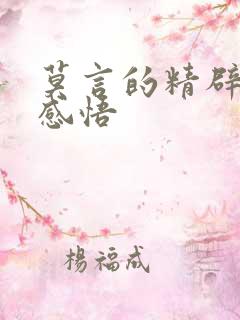 莫言的精辟
感悟
楊福成